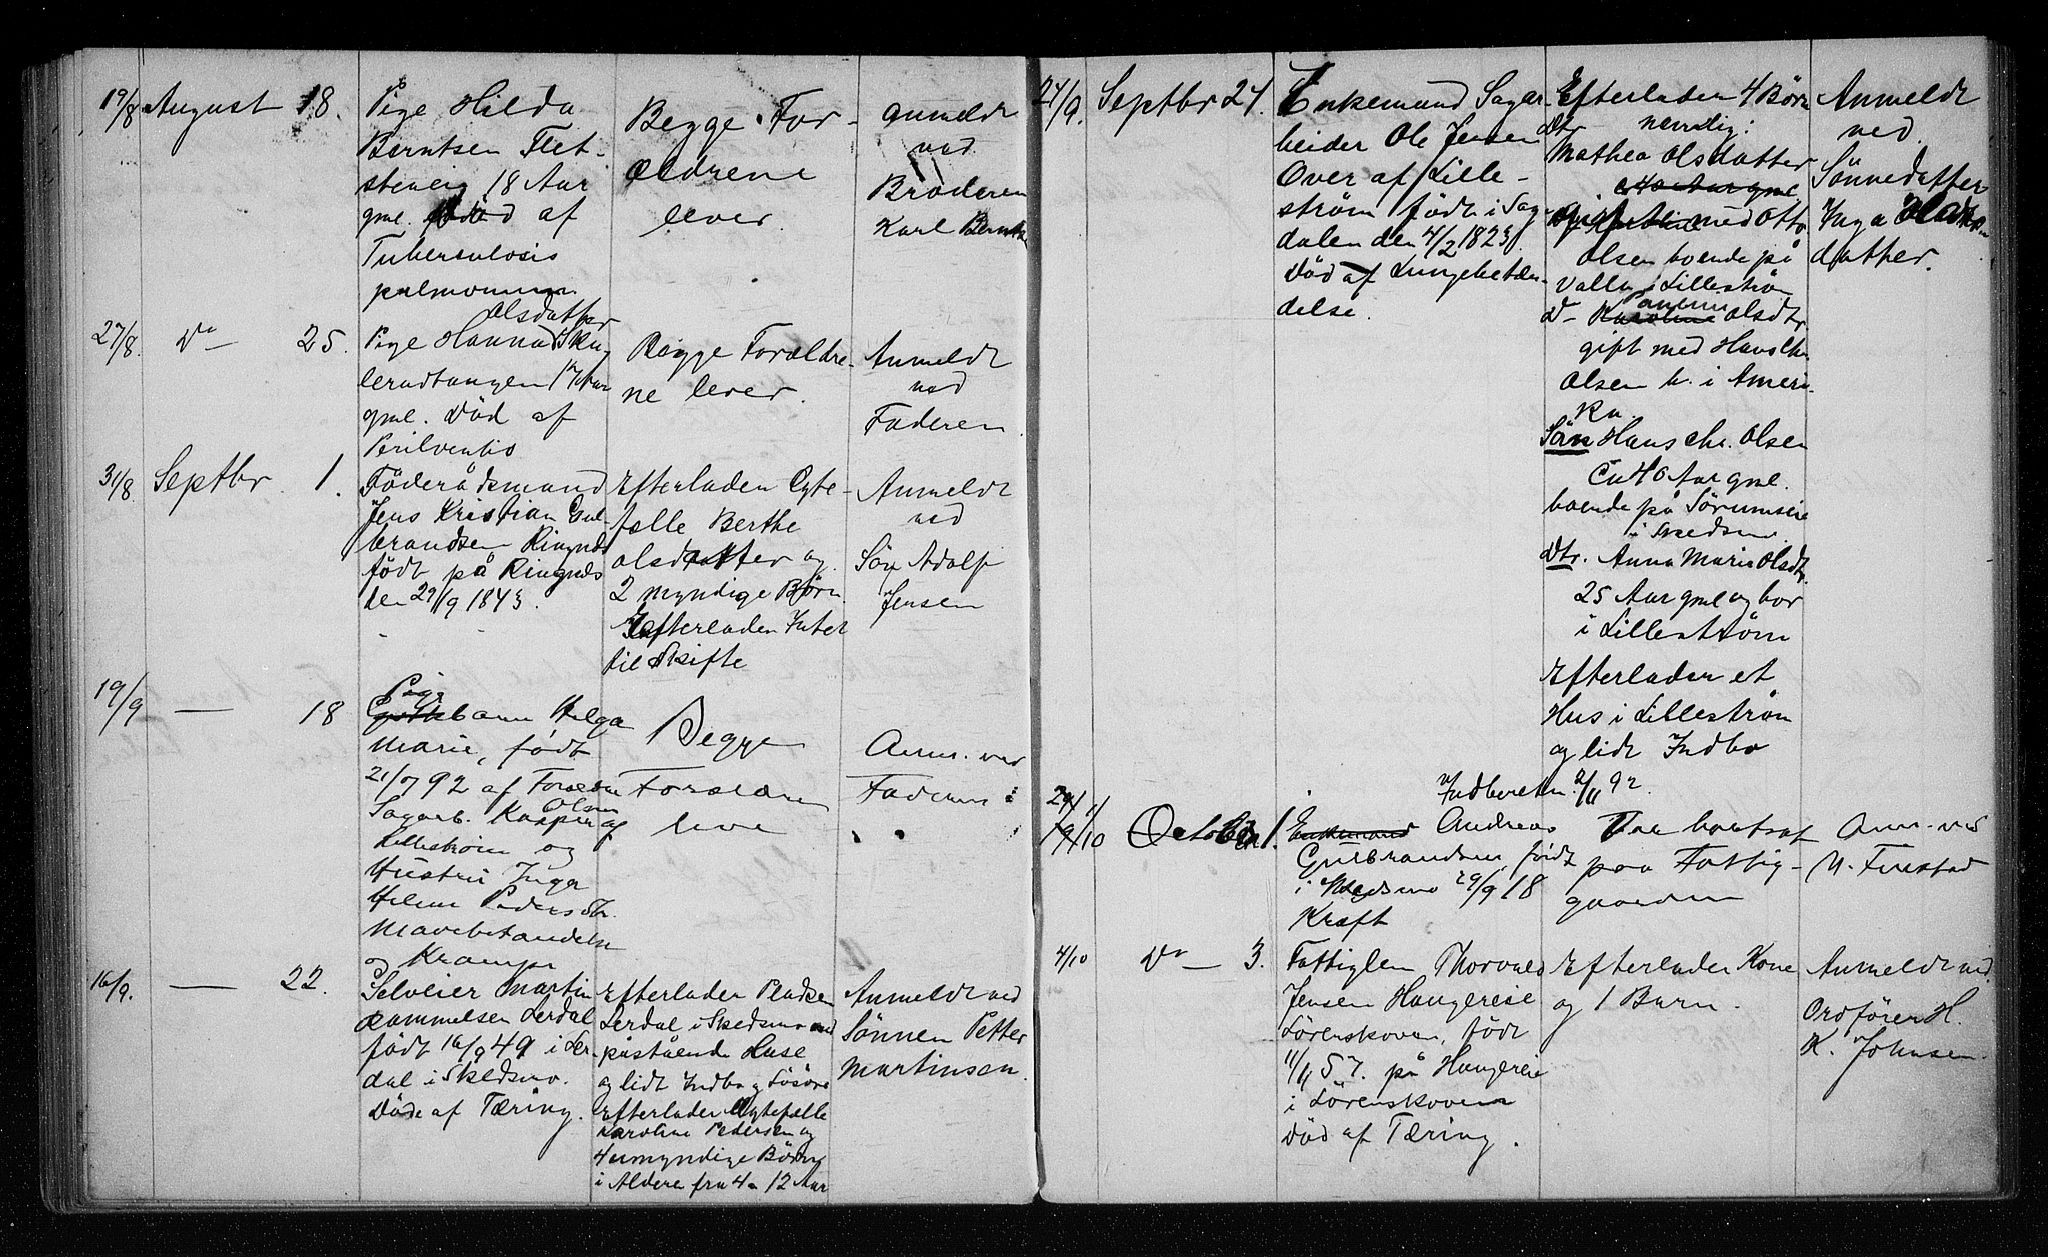 19/8 August 18.
Pige Hilda
Berntsen Flet-
steneie 18 Aar
gml. død af
Tuberculosis
pulmonum
Begge For-
ældrene
lever.
Anmeldt
ved
Broderen
Karl Berntsen
27/8. Do — 25.
Olsdatter
Pige Hanna Sku-
lerudtangen 17 Aar
gml. Död af
Begge Forældre-
ne lever.
Anmeldt
ved
Faderen.
31/8 Septbr. 1.
Föderådsmand
Jens Kristian Gul-
brandsen Ringnds
födt på Ringnds
den 29/9 1843.
Efterlader Egte-
fælle Berthe
Olsdatter og
2 myndige Börn.
Efterlader Intet
til Skifte
Anmeldt
ved
Sön Adolf
Jensen
19/9 — 18
Pige
barn Helga
Marie, født
21/7 92 af Forældre
Sagarb. Kasper Olsen af
Lillestrøm og
Hustru Inga
Helene Pedersdtr.
Mavebetændelse
og Krampe
Begge
Forældre
leve
Anm. ved
Faderen
16/9. — 22.
Selveier Martin
Lerdal
født 16/9 49 i Ler-
dal i Skedsmo.
Døde af Tæring.
Efterlader Pladsen
Lerdal i Skedsmo med
påstående Huse
og lidt Indbo og Løsøre
Efterlader Egtefælle
Karoline Pedersen og
4 umyndige Börn
i Alderen fra 4 - 12 Aar
Anmeldt ved
Sønnen Petter
Martinsen.
24/9. Septbr 24.
Enkemand Sagar-
beider Ole Jensen
Over af Lille-
ström födt i Sag-
dalen den 4/2 1823.
Död af Lungebetæn-
delse.
Efterlader 4 Börn
nemlig:
Dtr Mathea Olsdatter
gift med Otto
Olsen boende på
Volla i Lilleström
D— Olsdtr.
gift med Hans Chr.
Olsen b. i Ameri-
ka.
Sön Hans Chr. Olsen
Cu 40 Aar gml.
boende på Sörumseie
i Skedsmo.
Dtr. Anna Marie Olsdtr.
25 Aar gml og bor
i Lilleström
Efterlader et
Hus i Lilleström
og lidt Indbo
Anmeldt
ved
Sönnedatter
Inga
datter.
Indberetn. 2/11 92.
1/10 October 1.
Enkemand Andreas
Gulbrandsen, födt
i Skedsmo 29/9 18
Kræft
Var bortsat
paa Fattig-
gaarden
Anm. ved
N. Finstad
4/10 Do — 3.
Fattiglem Thorvald
Jensen Haugereie
Lörenskoven, födt
11/11 57. på Haugereie
i Lörenskoven
Död af Tæring.
Efterlader Kone
og 1 Barn.
Anmeldt ved
Ordförer H.
K. Johnsen.